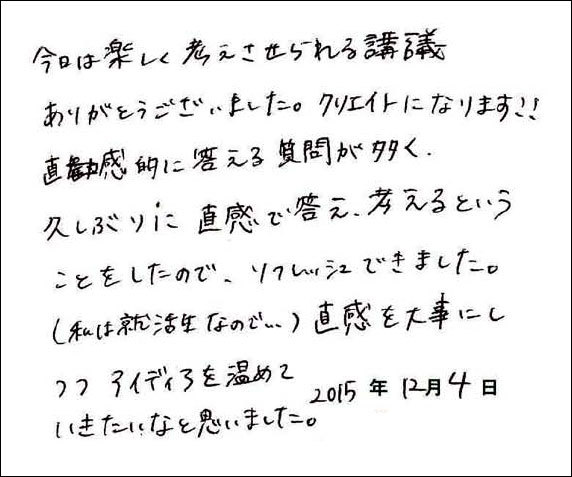 今日は楽しく考えさせられる講議
ありがとうございました。クリエイトになります!!
直感的に答える質問が多く、
久しぶりに直感で答え、考えるという
ことをしたので、リフレッシュできました。
(私は就活生なので...)直感を大事にし
つつ アイディアを温めて
いきたいなと思いました。
2015 年 12月 4 日